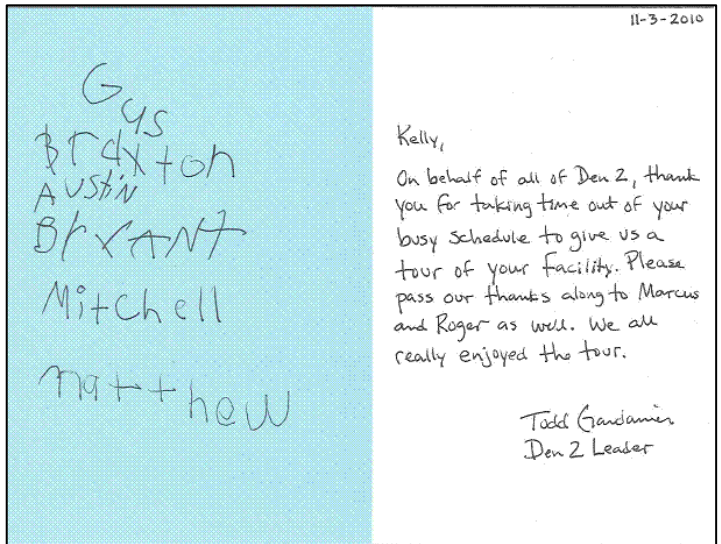 Gus
Braxton
AUStiN
BryANT
Mitchell
matthew
11-3-2010
Kelly,
On behalf of all of Den 2, thank
you for taking time out of your
busy schedule to give us a
tour of your facility. Please
pass our thanks along to Marcus
and Roger as well. We all
really enjoyed the tour.
Todd
Den 2 Leader